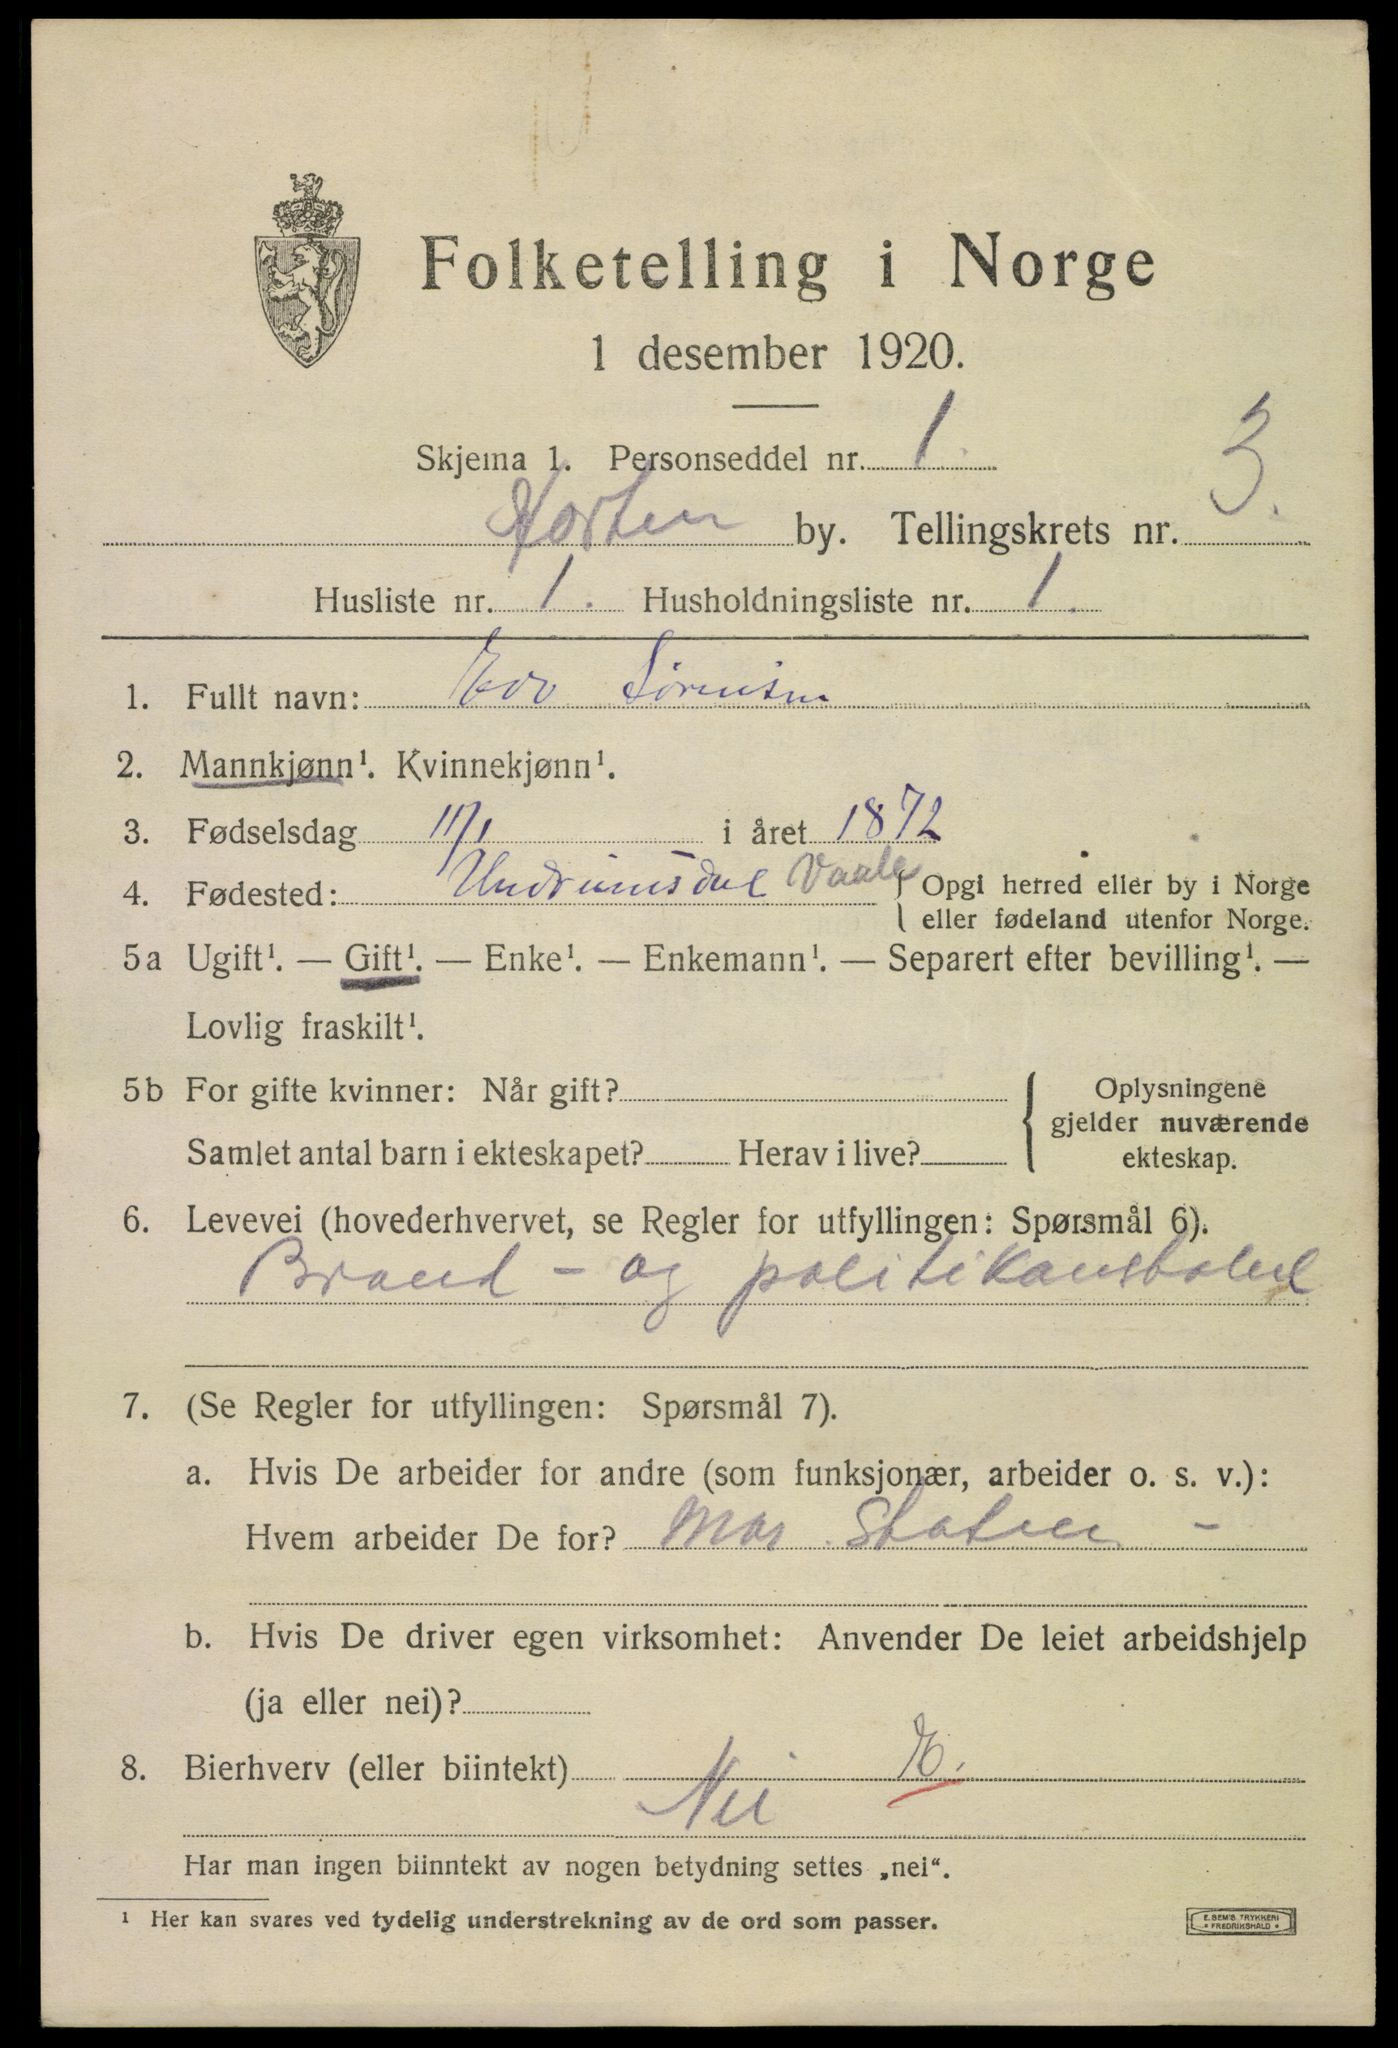 Folketelling i Norge
1 desember 1920.
Skjema 1. Personseddel nr. 1.
Horten by. Tellingskrets nr. 3.
Husliste nr. 1. Husholdningsliste nr. 1.
1. Fullt navn: Sørensen
2. Mannkjønn¹. Kvinnekjønn¹.
3. Fødselsdag 11/1 i året 1872
4. Fødested: Undrumsdal Vaale { Opgi herred eller by i Norge
eller fødeland utenfor Norge.
5a Ugift¹. — Gift¹. — Enke¹. — Enkemann¹. — Separert efter bevilling¹. —
Lovlig fraskilt¹.
5b For gifte kvinner: Når gift? { Oplysningene
gjelder nuværende
Samlet antal barn i ekteskapet? Herav i live? ekteskap.
6. Levevei (hovederhvervet, se Regler for utfyllingen: Spørsmål 6).
Brand - og politikonstabel
7. (Se Regler for utfyllingen: Spørsmål 7).
a. Hvis De arbeider for andre (som funksjonær, arbeider o. s. v.):
Hvem arbeider De for? Mar. Staten -
b. Hvis De driver egen virksomhet: Anvender De leiet arbeidshjelp
(ja eller nei)?
8. Bierhverv (eller biintekt)
Nei
Har man ingen biinntekt av nogen betydning settes „nei“.
¹ Her kan svares ved tydelig understrekning av de ord som passer.
E. SEM'S TRYKKERI
• FREDRIKSHALD •